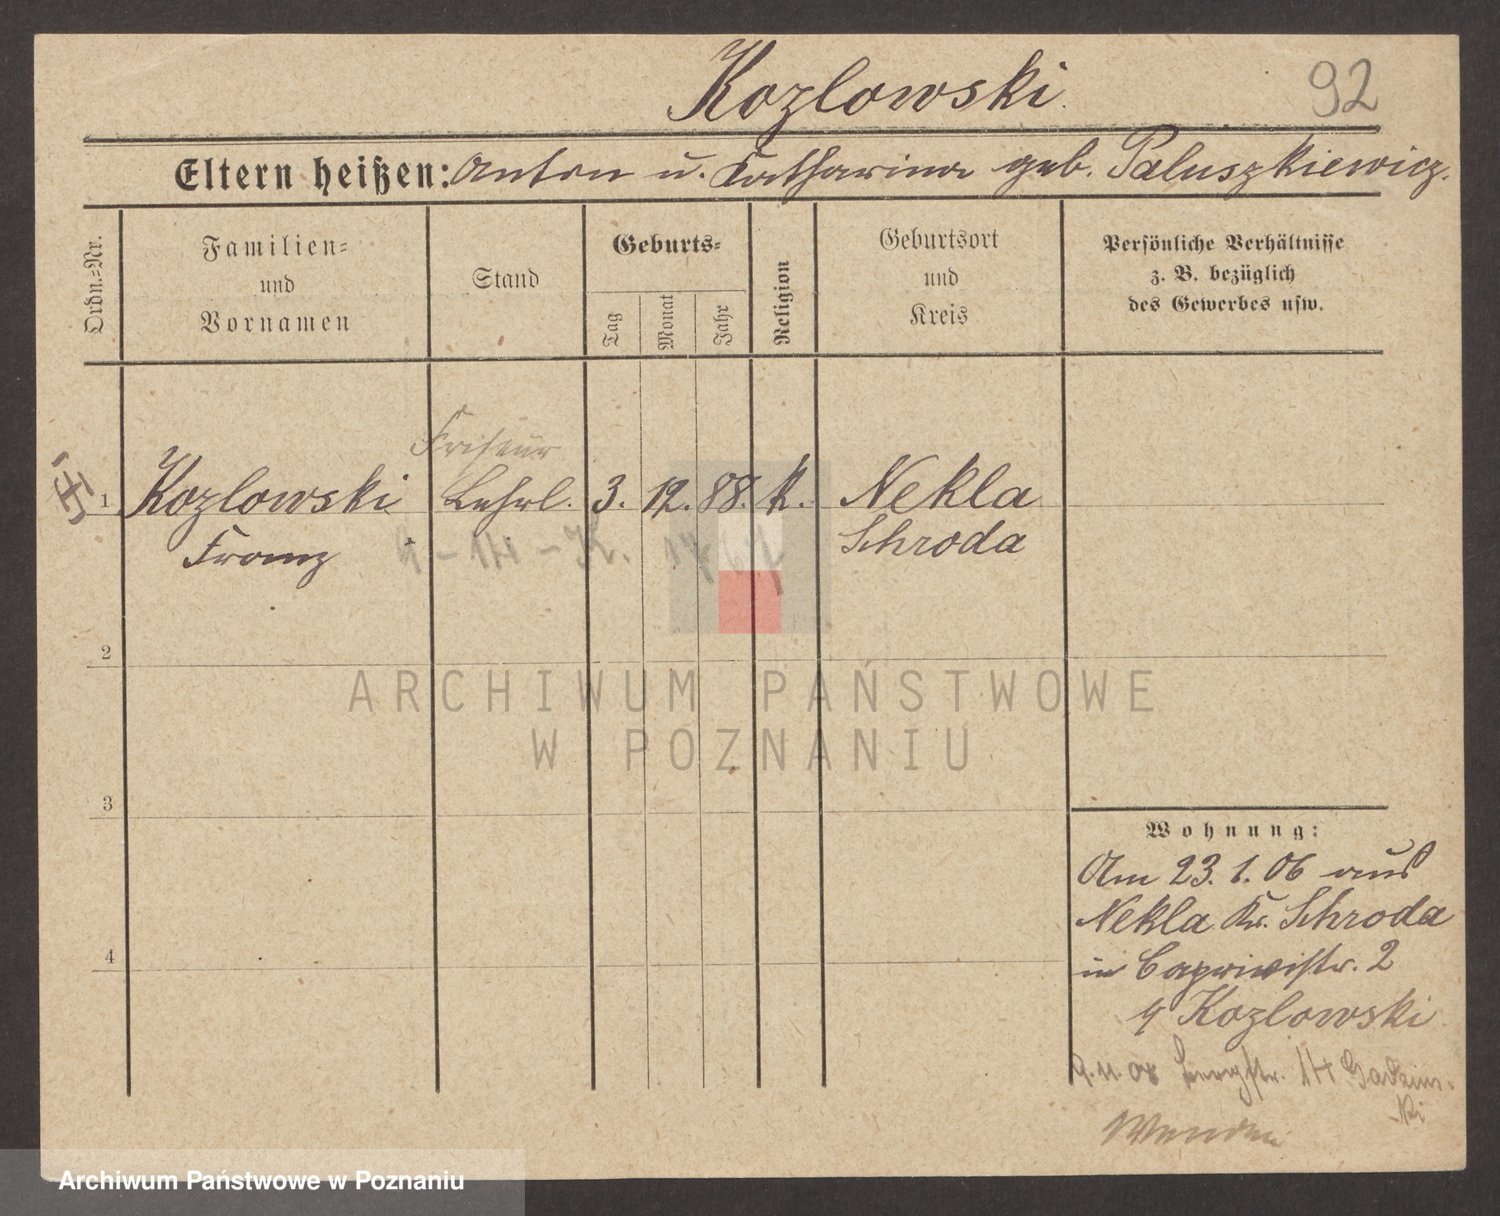 Kozlowski
92
Eltern heißen: Anton u. Katharina geb. Paluszkiewicz.
Ordn.=Nr.
Familien=
und
Vornamen
Stand
Geburts=
Tag
Monat
Jahr
Religion
Geburtsort
und
Kreis
Persönliche Verhältnisse
z. B. bezüglich
des Gewerbes usw.
Friseur
1 Kozlowski Lehrl. 3. 12. 88. k. Nekla
Franz Schroda
2
ARCHIWUM PAŃSTWOWE
W POZNANIU
3
Wohnung:
Am 23. 1. 06 aus
Nekla Kr. Schroda
in Caprivistr. 2
Kozlowski
4
9. 11. 08 14
Wenden
Archiwum Państwowe w Poznaniu